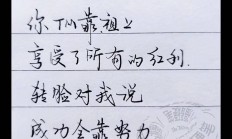 你TM靠祖上
享受了所有的红利.
转脸对我说
成功全靠努力